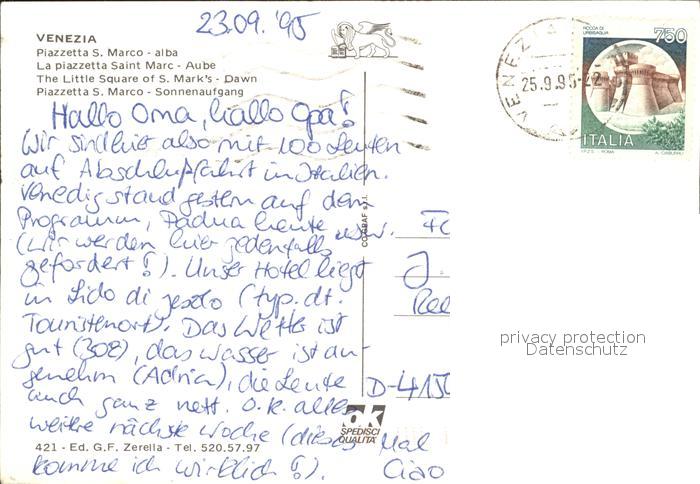 23.09.'95
VENEZIA
Piazzetta S. Marco - alba
La piazzetta Saint Marc - Aube
The Little Square of S. Mark's - Dawn
Piazzetta S. Marco - Sonnenaufgang
Hallo Oma, hallo Opa!
Wir sind hier also mit 100 Leuten
auf Abschlußfahrt in Italien.
Venedig stand gestern auf dem
Programm, Padua heute usw.
(wir werden hier jedenfalls
gefordert!). Unser Hotel liegt
in Lido di Jesolo (typ. dt.
Touristenort). Das Wetter ist
gut (30°), das Wasser ist an-
genehm (Adria), die Leute
auch ganz nett. O.K. alles
weitere nächste Woche (dieses Mal
komme ich wirklich!).
Ciao
421 - Ed. G.F. Zerella - Tel. 520.57.97
D-4150
ak
SPEDISCI
QUALITA'
VENEZIA
25.9.95-22
ROCCA DI
URBISAGLIA
750
ITALIA
I.P.Z.S. - ROMA
privacy protection
Datenschutz